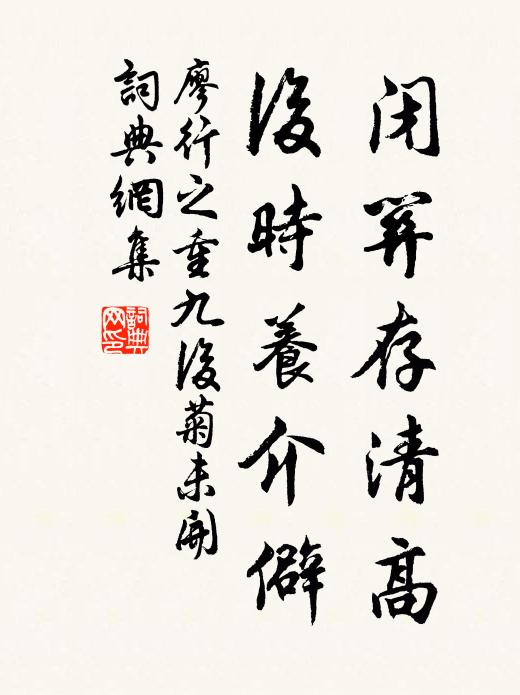 闭存清高
後時養介僻
廖行之重九後菊未開
詞典網集
詞典网印